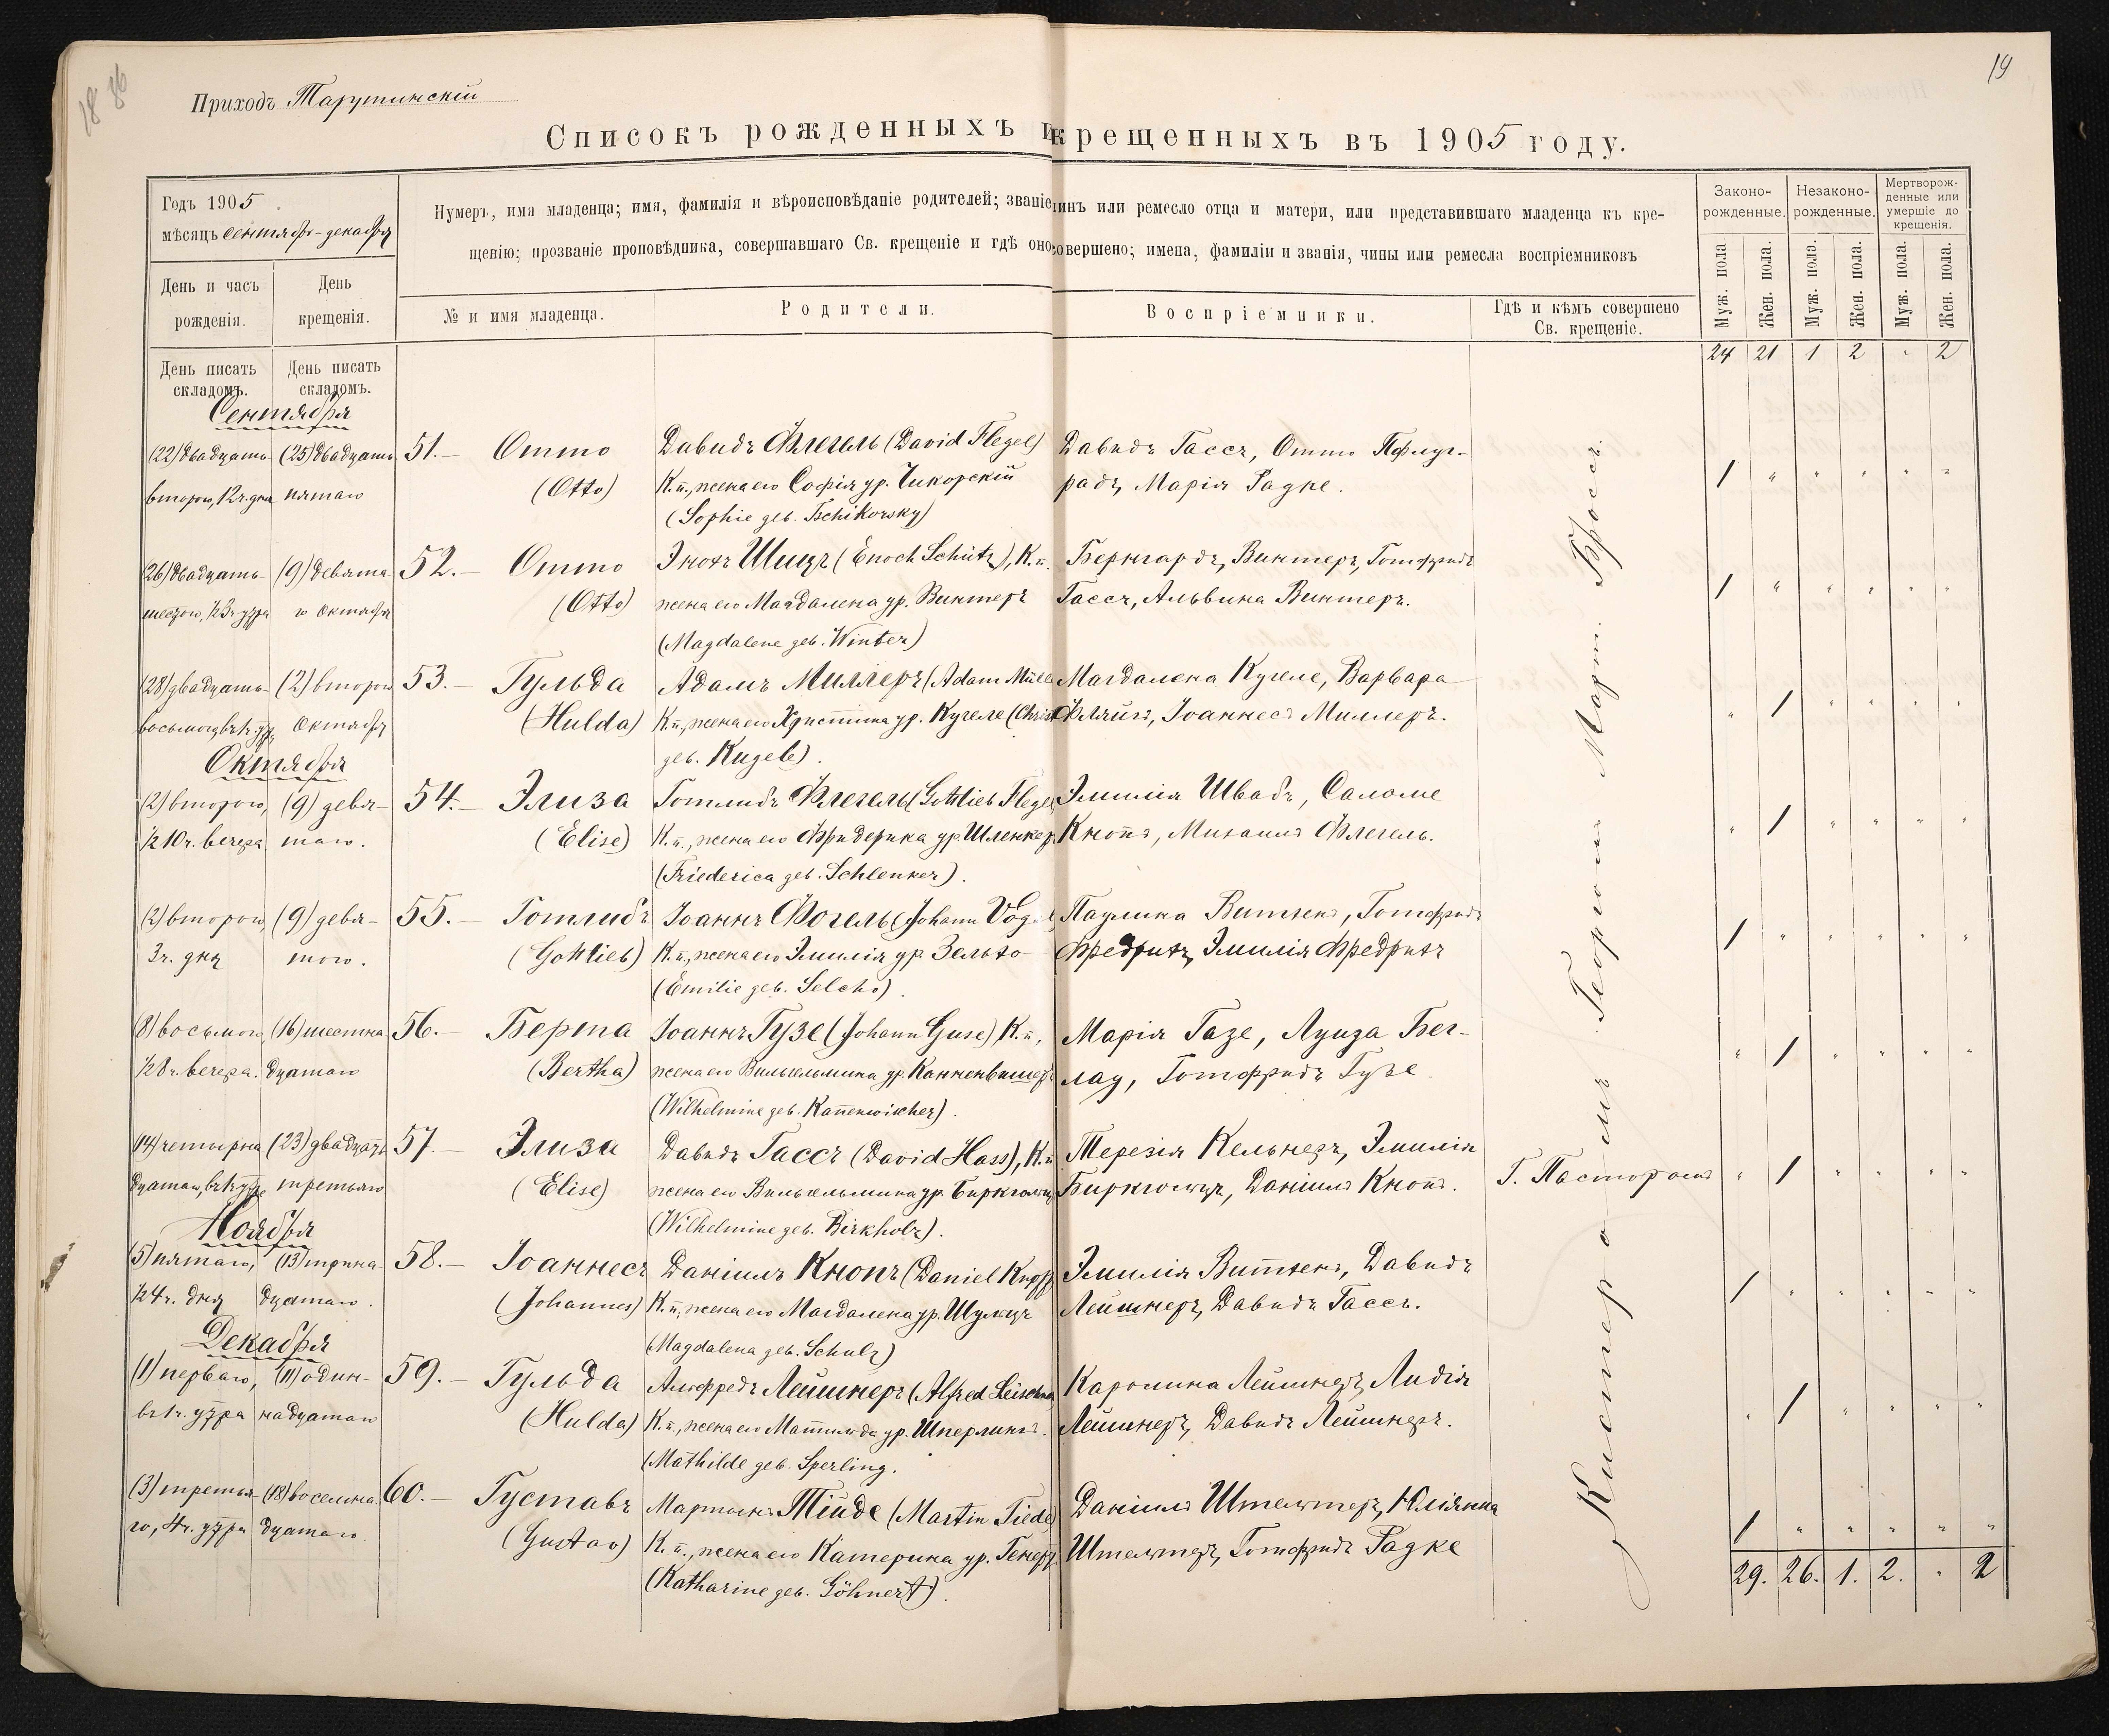 18 86
19
Приходъ Тарутинскій
Списокъ рожденныхъ и крещенныхъ въ 1905 году.
Годъ 1905
мѣсяцъ сентября-декабря
Нумеръ, имя младенца; имя, фамилія и вѣроисповѣданіе родителей; званіе чинъ или ремесло отца и матери, или представившаго младенца къ кре-
щенію; прозваніе проповѣдника, совершавшаго Св. крещеніе и гдѣ оно совершено; имена, фамиліи и званія, чины или ремесла воспріемниковъ
Законо-рожденные.
Незаконо-рожденные.
Мертворож-денные или умершіе до крещенія.
Муж. пола.
Жен. пола.
Муж. пола.
Жен. пола.
Муж. пола.
Жен. пола.
День и часъ рожденія.
День крещенія.
№ и имя младенца.
Родители.
Воспріемники.
Гдѣ и кѣмъ совершено
Св. крещеніе.
День писать складомъ.
День писать складомъ.
24 21 1 2 " 2
Сентября
(22) двадцать (25) двадцать 51.— Отто Давидъ Флегель (David Flegel) Давидъ Гассъ, Отто Пфлуг-
второго, 12ч. дня пятаго (Otto) К.п., жена его Софія ур. Чикорскій радъ, Марія Радке. 1 " " " " "
(Sophie geb. Tschikorsky)
(26) двадцать (9) девята- 52.— Отто Энохъ Шицъ (Enoch Schütz), К.п. Бернгардъ, Винтеръ, Готфридъ
шестого, ½3ч. утра го октября (Otto) жена его Магдалена ур. Винтеръ Гассъ, Альвина Винтеръ. 1 " " " " "
(Magdalene geb. Winter)
(28) двадцать (2) второго 53.— Гульда Адамъ Миллеръ (Adam Mülle Магдалена Кугеле, Варвара
октября (Hulda) К.п., жена его Христина ур. Кугеле (Christ Іоаннесъ Миллеръ. " 1 " " " "
geb. Kugele).
Октября
(2) второго, (9) девя- 54.— Элиза Готлибъ Флегель (Gottlieb Flegel Эмилія Швабъ, Саломе
½10ч. вечера таго. (Elise) К.п., жена его Фридерика ур. Шленкеръ Кнопъ, Михаилъ Флегель. " 1 " " " "
(Friederica geb. Schlenker).
(2) второго, (9) девя- 55.— Готлибъ Іоаннъ Фогель (Johann Vogel Паулина Витженъ, Готфридъ
3ч. дня таго. (Gottlieb) К.п., жена его Эмилія ур. Зельхо Фредрихъ, Эмилія Фредрихъ 1 " " " " "
(Emilie geb. Selcho).
(8) восьмого, (16) шестна- 56.— Берта Іоаннъ Гузе (Johann Guse) К.п., Марія Газе, Луиза Бег-
½8ч. вечера. дцатаго (Bertha) жена его Вильгельмина ур. Канненвишеръ лау, Готфридъ Гузе " 1 " " " "
(Wilhelmine geb. Kan̄enwischer).
(14) четырна (23) двадцать 57.— Элиза Давидъ Гассъ (David Hass), К.п. Терезія Кельнеръ, Эмилія
третьяго (Elise) жена его Вильгельмина ур. Биркгольцъ Биркгольцъ, Даніилъ Кнопъ. Г. Пасторомъ " 1 " " " "
(Wilhelmine geb. Birkholz).
Ноября
(5) пятаго, (13) трина- 58.— Іоаннесъ Даніилъ Кнопъ (Daniel Knopp Эмилія Витженъ, Давидъ
½4ч. дня дцатаго. (Johannes) К.п., жена его Магдалена ур. Шульцъ Лейшнеръ, Давидъ Гассъ. 1 " " " " "
(Magdalena geb. Schulz)
Декабря
(1) перваго, (11) один- 59.— Гульда Альфредъ Лейшнеръ (Alfred Leischner Каролина Лейшнеръ, Лидія
въ 1ч. утра надцатаго (Hulda) К.п., жена его Матильда ур. Шперлингъ. Лейшнеръ, Давидъ Лейшнеръ. " 1 " " " "
(Mathilde geb. Sperling.
(3) третья- (18) восемна- 60.— Густавъ Мартинъ Тиде (Martin Tiede) Даніилъ Штельтеръ, Юліанна
го, 4ч. утра дцатаго. (Gustav) К.п., жена его Катерина ур. Генертъ Штельтеръ, Готфридъ Радке 1 " " " " "
(Katharine geb. Göhnert).
29. 26. 1. 2. " 2
Кистеромъ Георгомъ Март. Броссъ